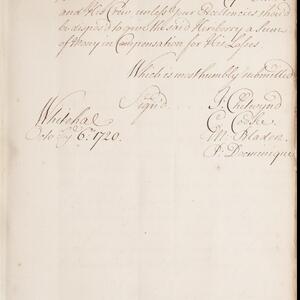 and His Crew unless Your Excellencies should
be dispos'd to give the said Newberry a Sum
of Money in Compensation for His Losses
Which is most humbly submitted
Sign'd J. Chetwynd
Whitehal C. Cooke
Octo. ye 6th. 1720. M. Bladen
P. Dominique